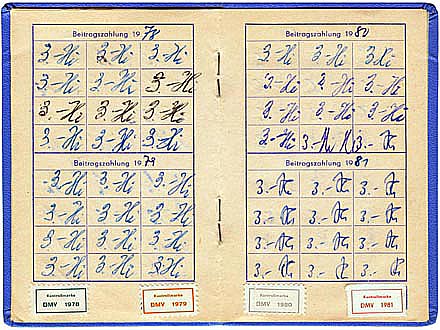 Beitragszahlung 1978
3.-Hi 3.-Hi 3.-Hi
3.-Hi 3.-Hi 3.-Hi
3.-Hi 3.-Hi 3.-Hi
3.-Hi 3.-Hi 3.-Hi
Beitragszahlung 1979
3.-Hi 3.-Hi 3.-Hi
3.-Hi 3.-Hi 3.-Hi
3.-Hi 3.-Hi 3.-Hi
3.-Hi 3.-Hi 3.-Hi
Kontrollmarke
DMV 1978
Kontrollmarke
DMV 1979
Beitragszahlung 1980
3.-Hi 3.-Hi 3.-Hi
3.-Hi 3.-Hi 3.-Hi
3.-Hi 3.-Hi 3.-Hi
3.-Hi 3.- 3.-
Beitragszahlung 1981
3.- 3.- 3.-
3.- 3.- 3.-
3.- 3.- 3.-
3.- 3.- 3.-
Kontrollmarke
DMV 1980
Kontrollmarke
DMV 1981